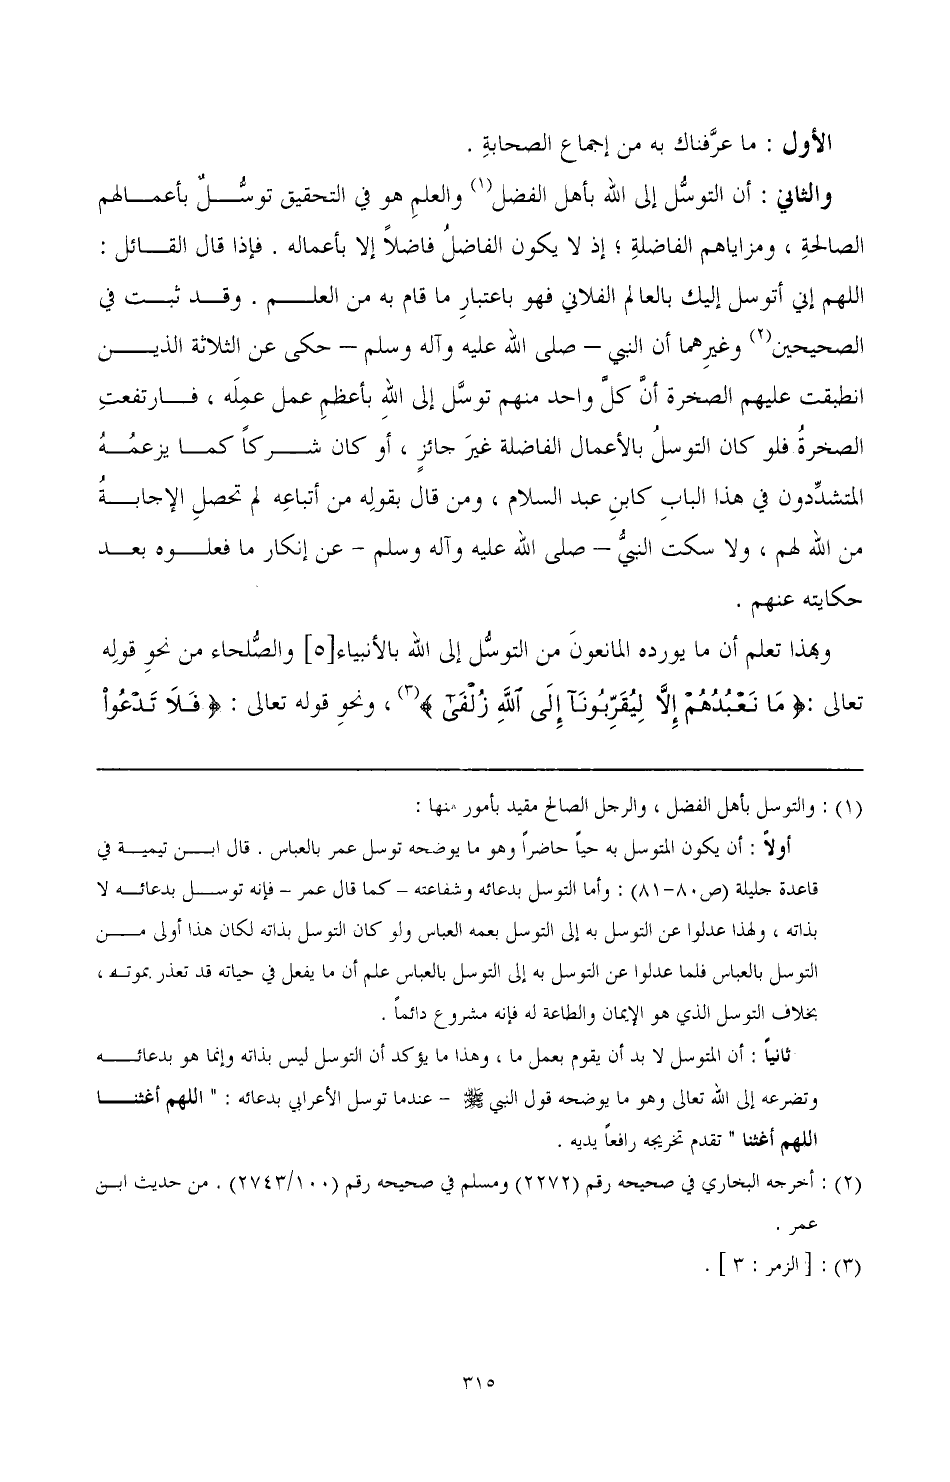 الأول : ما عرَّفناك به من إجماع الصحابةِ .
والثاني : أن التوسُّل إلى الله بأهل الفضل(١) والعلمِ هو في التحقيق توسُّلٌ بأعمالهم
الصالحةِ ، ومزاياهم الفاضلةِ ؛ إذ لا يكون الفاضلُ فاضلاً إلا بأعماله . فإذا قال القائل :
اللهم إني أتوسل إليك بالعالم الفلاني فهو باعتبارِ ما قام به من العلم . وقد ثبت في
الصحيحين(٢) وغيرِهما أن النبي – صلى الله عليه وآله وسلم – حكى عن الثلاثة الذين
انطبقت عليهم الصخرة أنَّ كلَّ واحد منهم توسَّل إلى اللهِ بأعظمِ عمل عمِلَه ، فارتفعتِ
الصخرةُ فلو كان التوسلُ بالأعمال الفاضلة غيرَ جائزٍ ، أو كان شركاً كما يزعمُهُ
المتشدِّدون في هذا البابِ كابنِ عبد السلام ، ومن قال بقولِه من أتباعِه لم تحصلِ الإجابةُ
من الله لهم ، ولا سكت النبيُّ – صلى الله عليه وآله وسلم – عن إنكار ما فعلوه بعد
حكايته عنهم .
وبهذا تعلم أن ما يورده المانعونَ من التوسُّل إلى الله بالأنبياء[٥] والصُّلحاء من نحوِ قولِه
تعالى :﴿ مَا نَعْبُدُهُمْ إِلَّا لِيُقَرِّبُونَآ إِلَى ٱللَّهِ زُلْفَىٰٓ ﴾(٣) ، ونحوِ قوله تعالى : ﴿ فَلَا تَدْعُوا۟
(١) : والتوسل بأهل الفضل ، والرجل الصالح مقيد بأمور منها :
أولاً : أن يكون المتوسل به حياً حاضراً وهو ما يوضحه توسل عمر بالعباس . قال ابن تيمية في
قاعدة جليلة (ص٨٠–٨١) : وأما التوسل بدعائه وشفاعته – كما قال عمر – فإنه توسل بدعائه لا
بذاته ، ولهذا عدلوا عن التوسل به إلى التوسل بعمه العباس ولو كان التوسل بذاته لكان هذا أولى من
التوسل بالعباس فلما عدلوا عن التوسل به إلى التوسل بالعباس علم أن ما يفعل في حياته قد تعذر بموته ،
بخلاف التوسل الذي هو الإيمان والطاعة له فإنه مشروع دائماً .
ثانياً : أن المتوسل لا بد أن يقوم بعمل ما ، وهذا ما يؤكد أن التوسل ليس بذاته وإنما هو بدعائه
وتضرعه إلى الله تعالى وهو ما يوضحه قول النبي ﷺ – عندما توسل الأعرابي بدعائه : " اللهم أغثنا
اللهم أغثنا " تقدم تخريجه رافعاً يديه .
(٢) : أخرجه البخاري في صحيحه رقم (٢٢٧٢) ومسلم في صحيحه رقم (٢٧٤٣/١٠٠) . من حديث ابن
عمر .
(٣) : [ الزمر : ٣ ] .
٣١٥